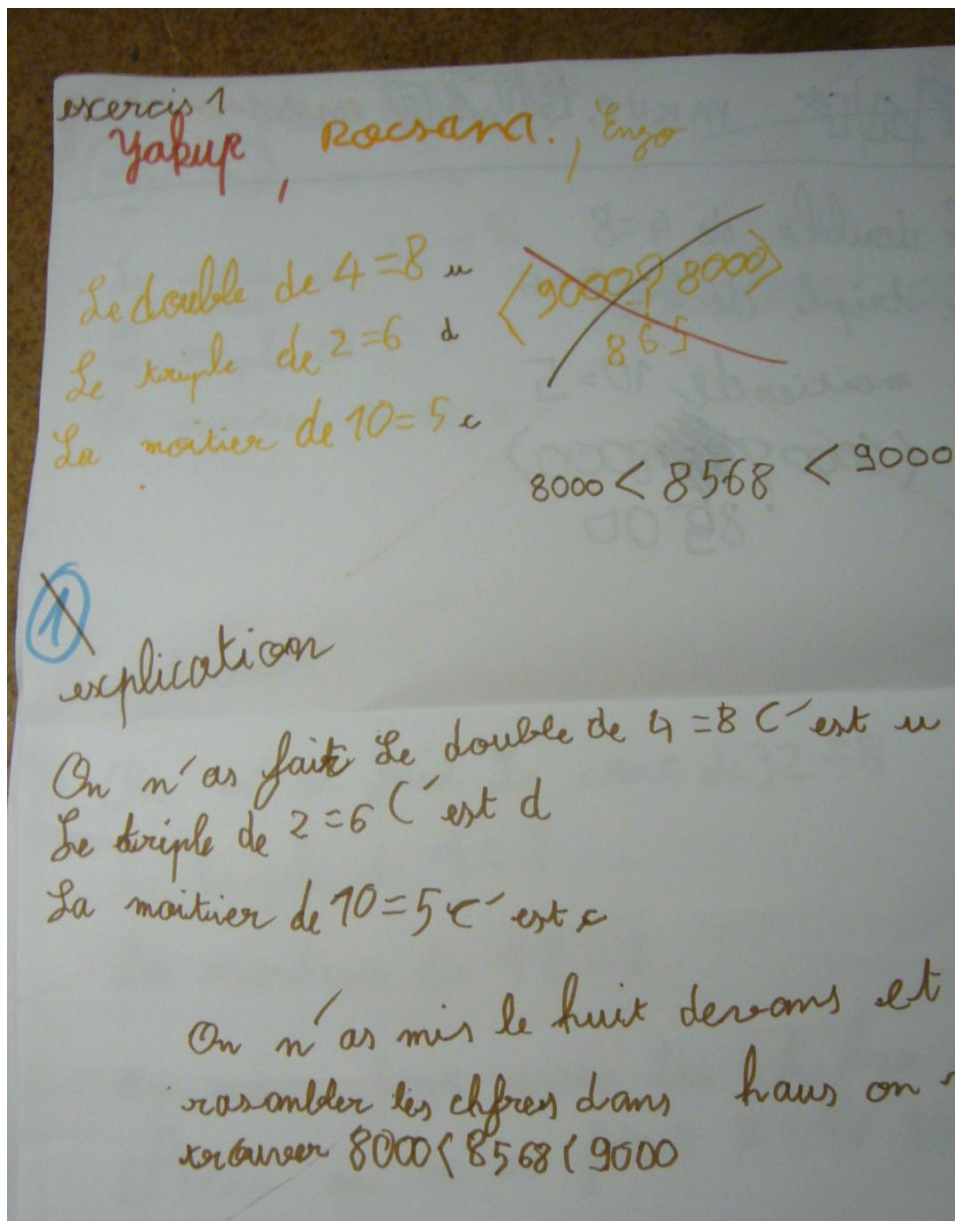 exercis 1
Yakup, Rocsana., Enzo
Le double de 4=8 u
Le triple de 2=6 d
La moitier de 10=5 c
<9000? 8000>
865
8000 < 8568 < 9000
1
explication
On n'as fait Le double de 4 =8 C'est u
Le triple de 2=6 C'est d
La moitier de 10=5 c'est c
On n'as mis le huit devans et
rasambler les chfres dans haus on
trouver 8000<8568<9000